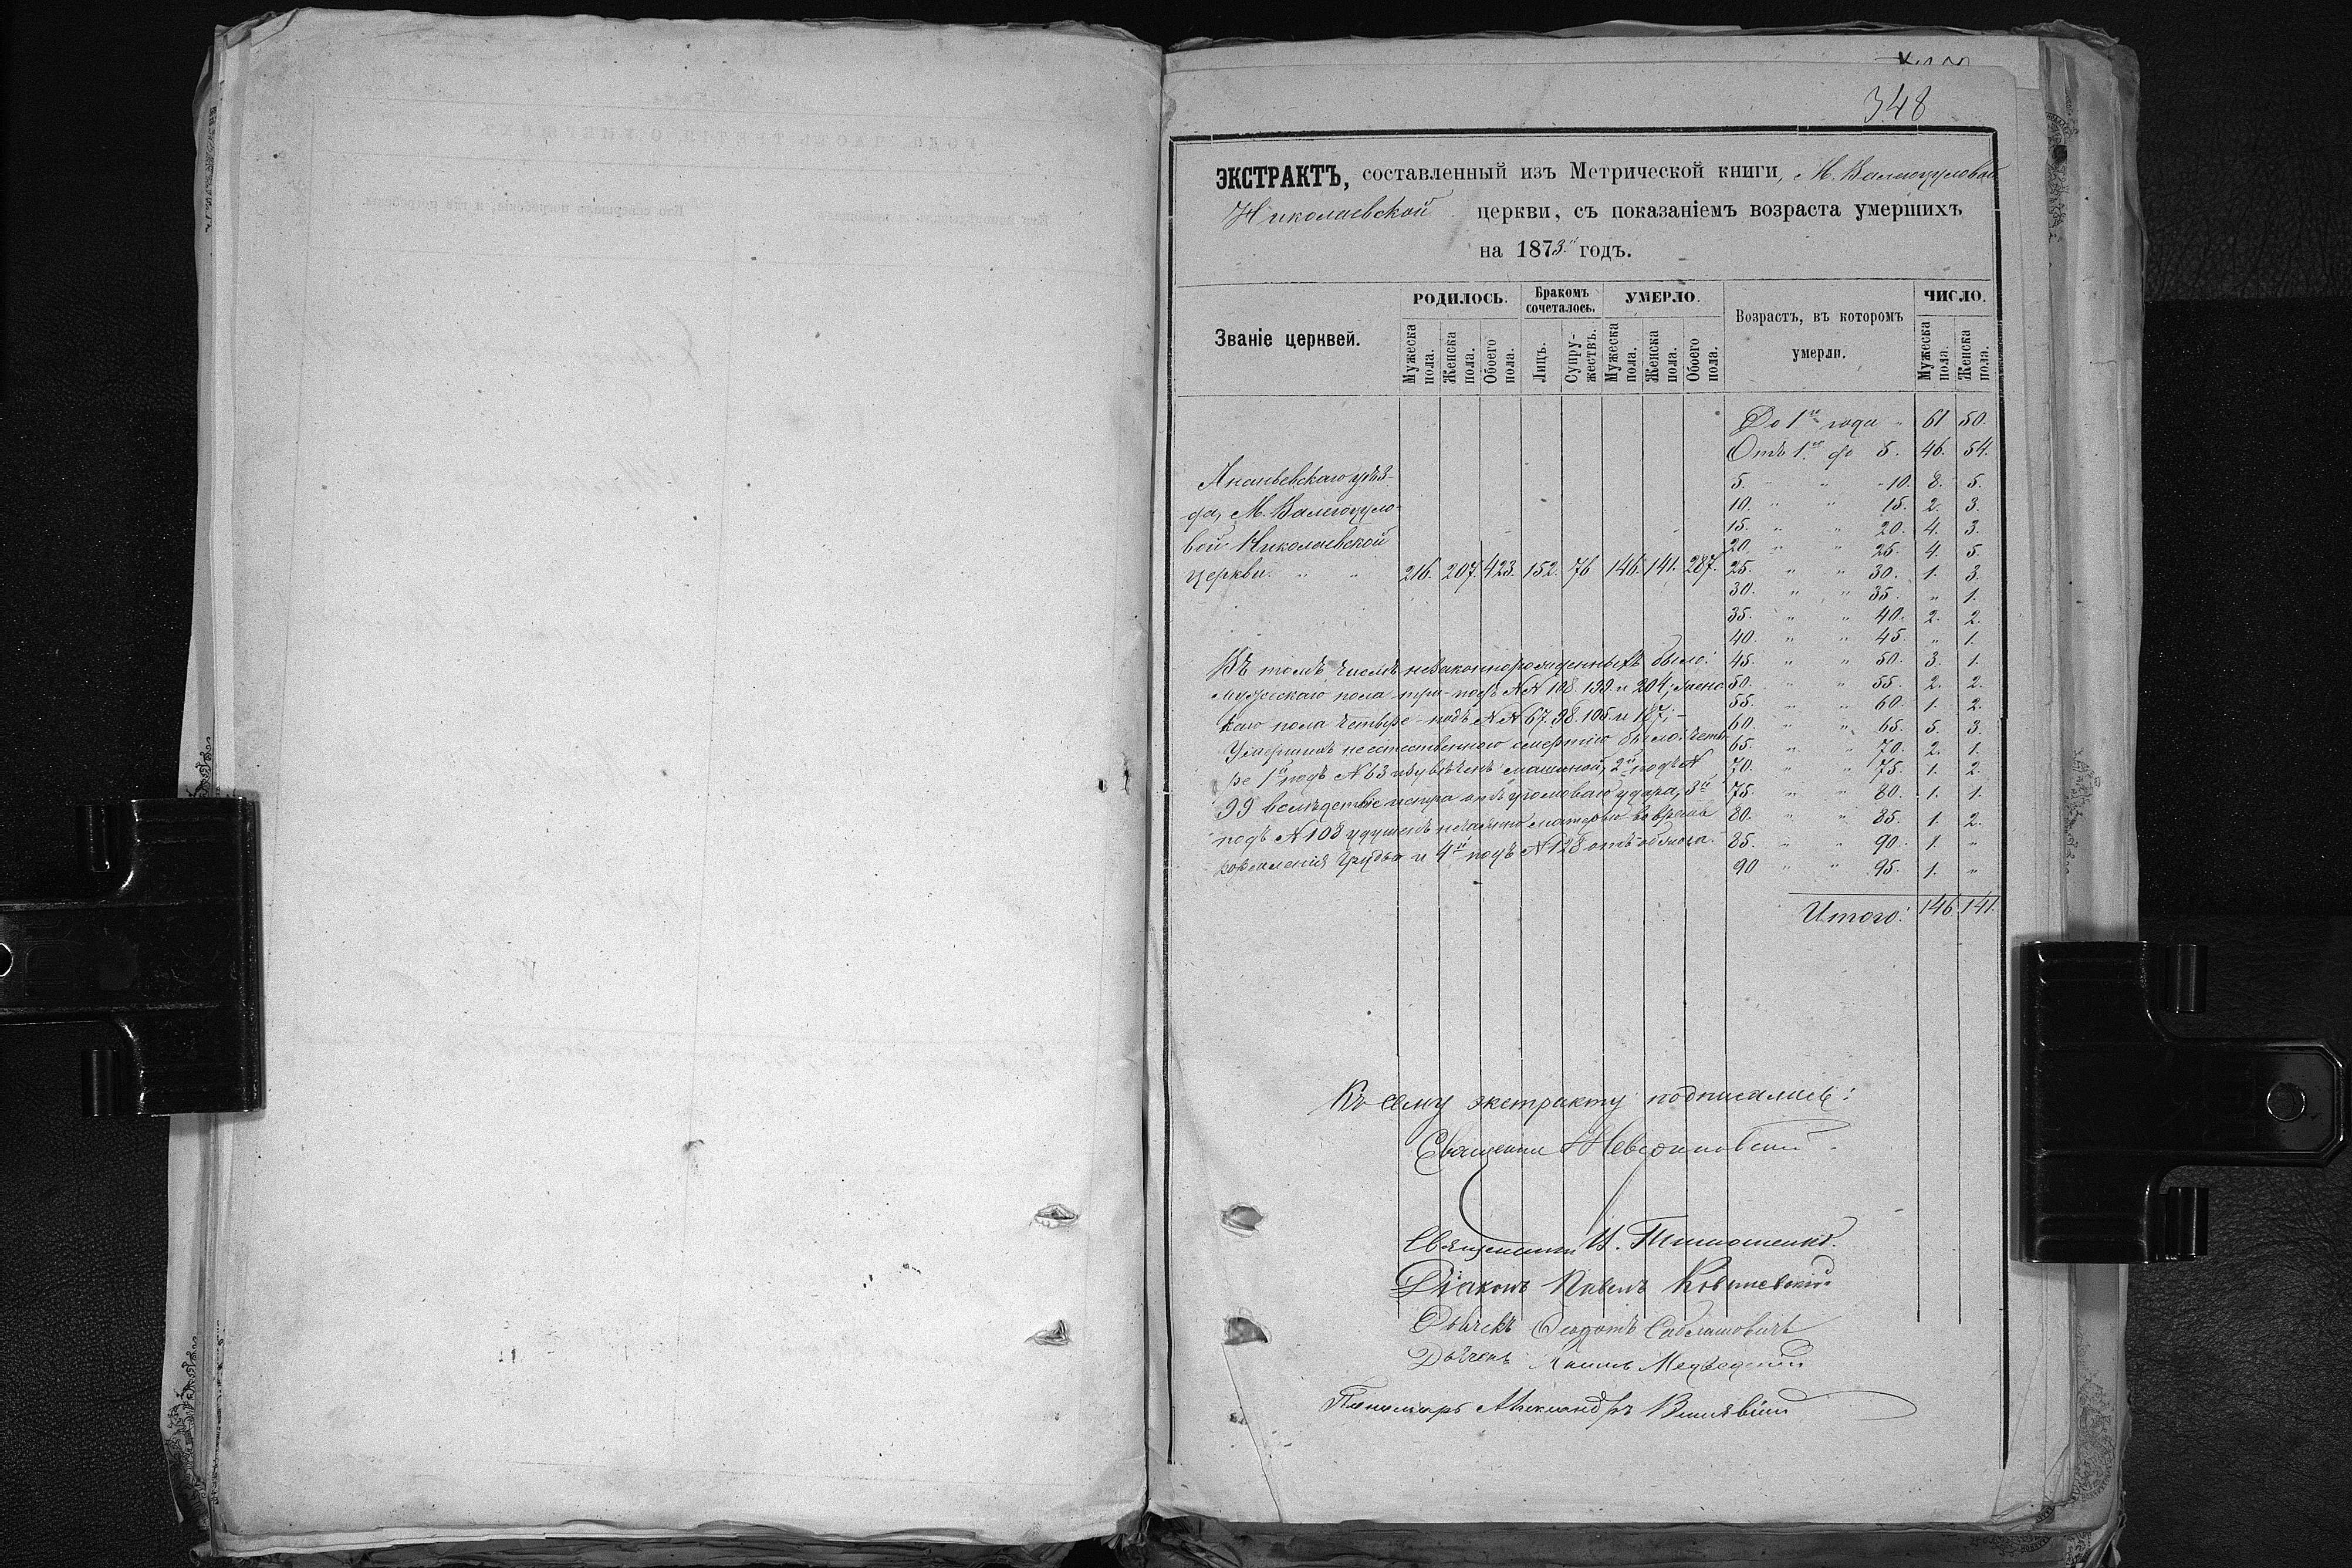 348
ЭКСТРАКТЪ, составленный изъ Метрической книги, М. Валегоцуловой
Николаевской церкви, съ показаніемъ возраста умершихъ
на 1873й годъ.
Званіе церквей.
РОДИЛОСЬ.
Бракомъ сочеталось.
УМЕРЛО.
Возрастъ, въ которомъ умерли.
ЧИСЛО.
Мужеска пола.
Женска пола.
Обоего пола.
Лицъ.
Супружествъ.
Мужеска пола.
Женска пола.
Обоего пола.
Мужеска пола.
Женска пола.
Ананьевскаго уѣз-
да, М. Валегоцуло-
вой Николаевской
церкви. " " 216. 207. 423. 152. 76 146. 141. 287.
До 1го года " 61 50.
Отъ 1го до 5. 46. 54.
5. " " 10. 8. 5.
10. " " 15. 2. 3.
15. " " 20. 4. 3.
20. " " 25. 4. 5.
25. " " 30. 1. 3.
30. " " 35. " 1.
35. " " 40. 2. 2.
40. " " 45. " 1.
45. " " 50. 3. 1.
50. " " 55. 2. 2.
55. " " 60. 1. 2.
60. " " 65. 5. 3.
65. " " 70. 2. 1.
70. " " 75. 1. 2.
75. " " 80. 1. 1.
80. " " 85. 1. 2.
85. " " 90. 1. "
90 " " 95. 1. "
Итого: 146 141.
Въ томъ числѣ незаконнорожденныхъ было:
мужескаго пола три - подъ NN 108. 139. и 204; женс
каго пола четыре - подъ NN 67. 98. 105. и 187; -
Умершихъ неестественною смертію было: четы-
ре 1й подъ N 63 изувѣченъ машиной, 2й подъ N
99 вслѣдствіе удара, 3й
подъ N 108 удушенъ нечаянно матерью во время
кормленія грудью и 4й подъ N 128 отъ
Къ сему экстракту подписались:
Священникъ
Священникъ И. Тимошенко.
Діаконъ Павелъ
Дьячекъ Ѳеодотъ
Дьячекъ Медвѣдскій
Пономарь Александръ